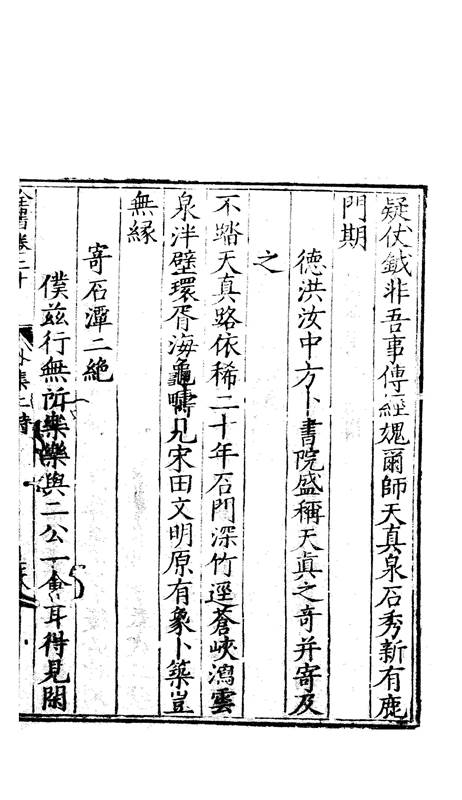 疑仗鉞非吾事傳經媿爾師天真泉石秀新有鹿
門期
德洪汝中方卜書院盛稱天眞之奇并寄及
之
不踏天真路依稀二十年石門深竹逕蒼峽瀉雲
泉泮壁環胥海龜疇見宋田文明原有象卜築豈
無緣
寄石潭二絶
僕兹行無所樂樂與二公一會耳得見閑
全書卷二十 外集二 詩